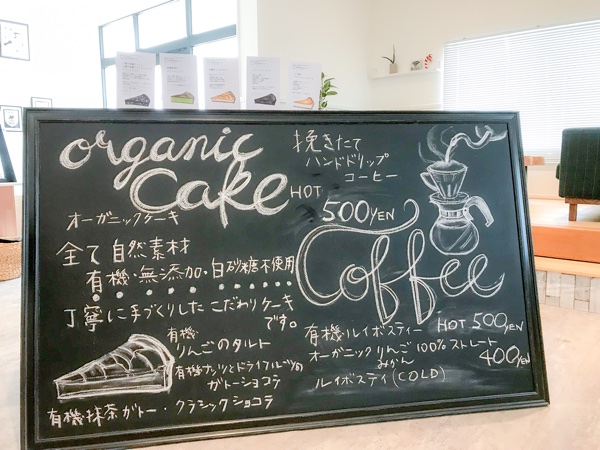 organic
cake
オーガニックケーキ
全て自然素材
有機・無添加・白砂糖不使用
丁寧に手づくりした こだわりケーキ
です。
有機
りんごのタルト
有機ナッツとドライフルーツの
ガトーショコラ
有機抹茶ガトー・クラシックショコラ
挽きたて
ハンドドリップ
コーヒー
HOT
500YEN
Coffee
有機ルイボスティー HOT 500YEN
オーガニック りんご 100% ストレート
みかん
400YEN
ルイボスティ(COLD)